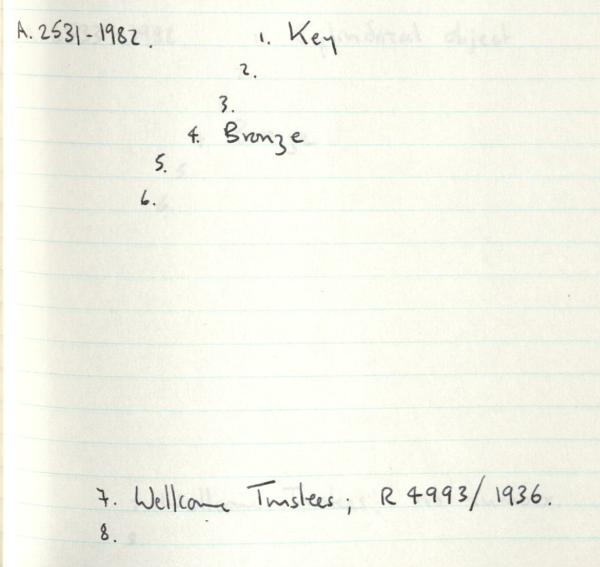 A. 2531-1982. 1. Key
2.
3.
4. Bronze
5.
6.
7. Wellcome Trustees; R 4993/1936.
8.